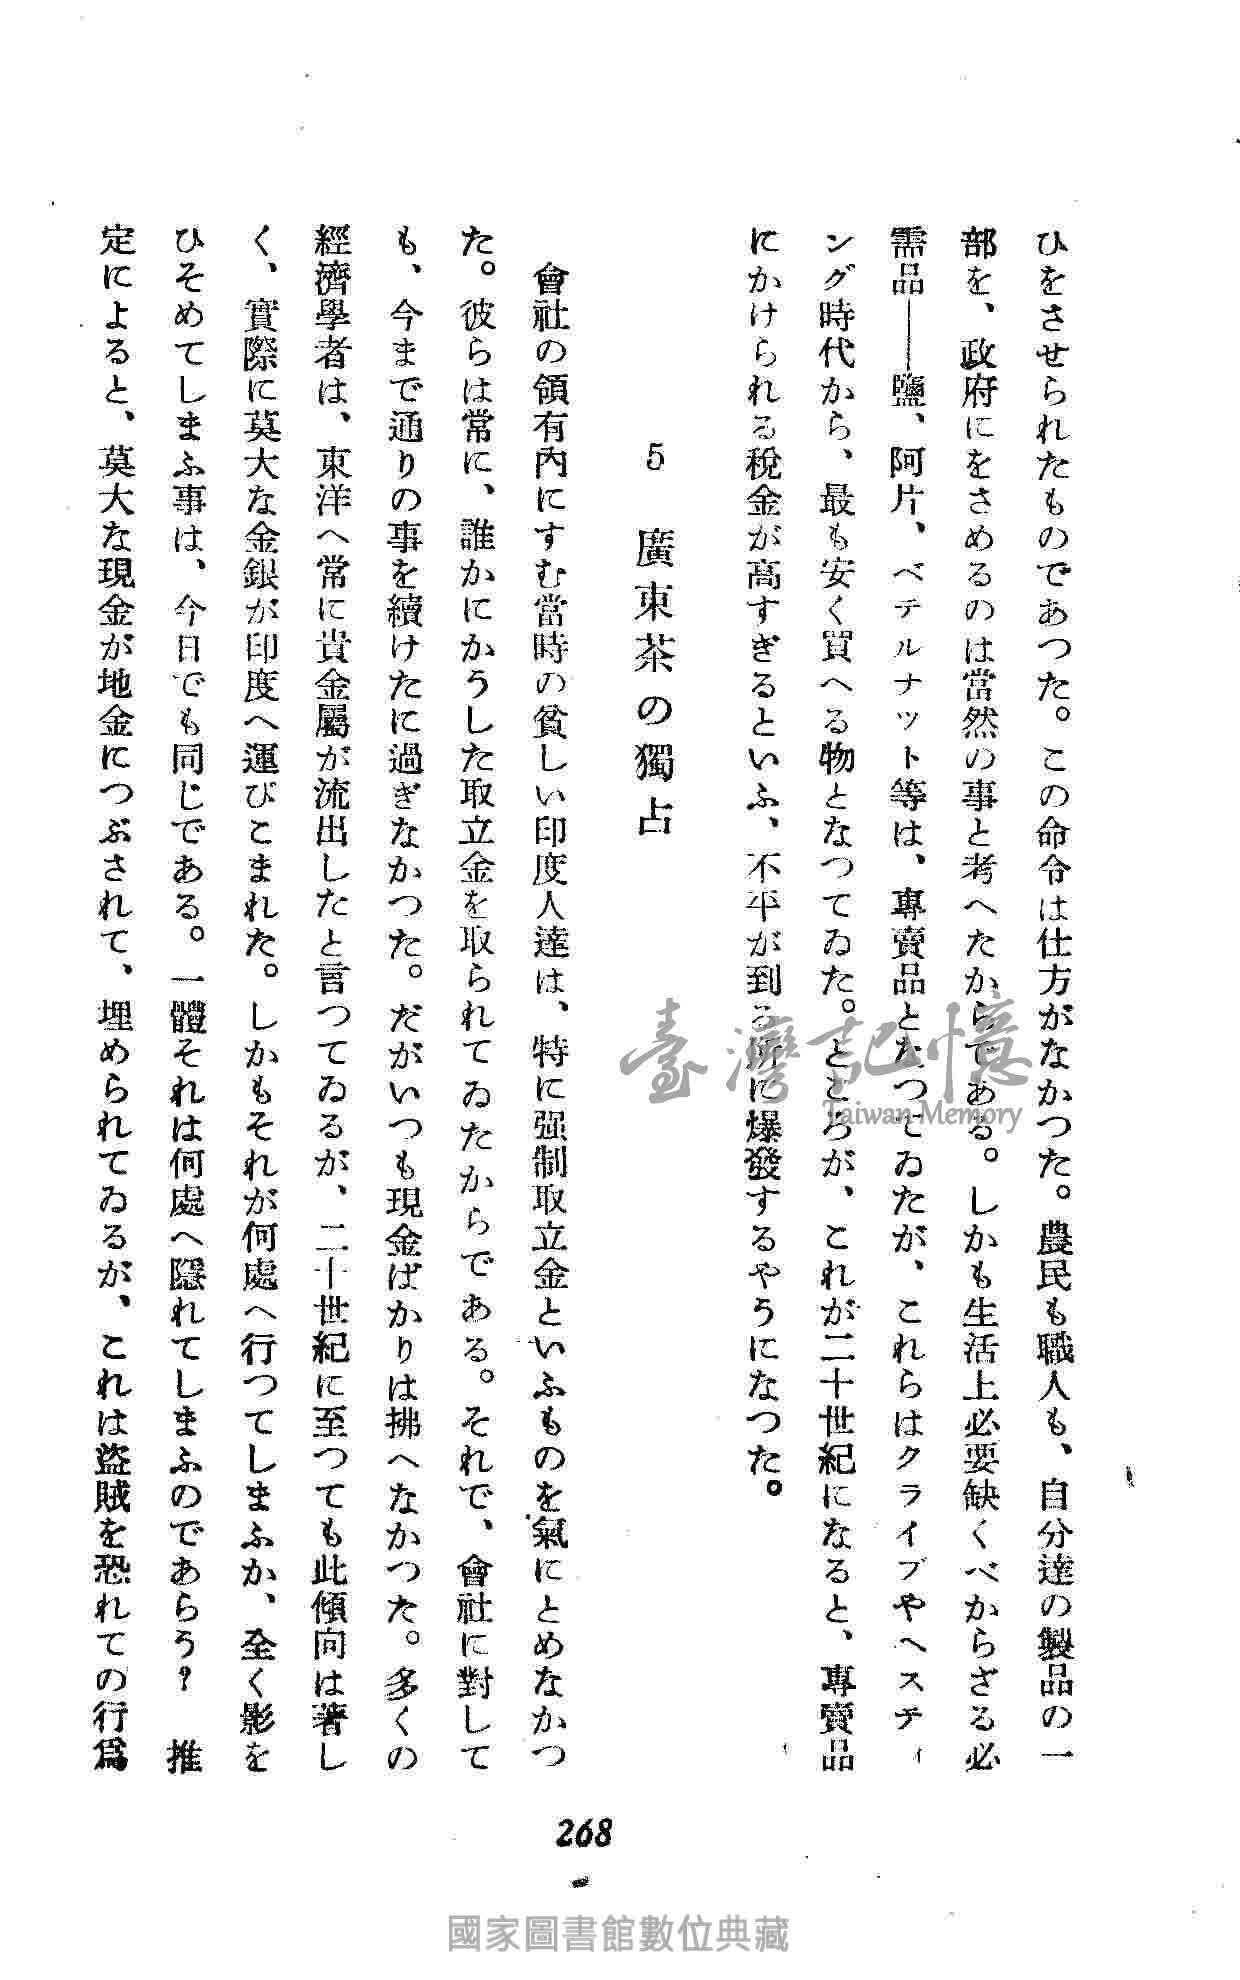 ひをさせられたものであつた。この命令は仕方がなかつた。農民も職人も、自分達の製品の一
部を、政府にをさめるのは當然の事と考へたからである。しかも生活上必要缺くべからざる必
需品――鹽、阿片、ベテルナット等は、專賣品となつてゐたが、これらはクライブやヘスティ
ング時代から、最も安く買へる物となつてゐた。ところが、これが二十世紀になると、專賣品
にかけられる稅金が高すぎるといふ、不平が到る所に爆發するやうになつた。
5 廣東茶の獨占
會社の領有內にすむ當時の貧しい印度人達は、特に强制取立金といふものを氣にとめなかつ
た。彼らは常に、誰かにかうした取立金を取られてゐたからである。それで、會社に對して
も、今まで通りの事を續けたに過ぎなかつた。だがいつも現金ばかりは拂へなかつた。多くの
經濟學者は、東洋へ常に貴金屬が流出したと言つてゐるが、二十世紀に至つても此傾向は著し
く、實際に莫大な金銀が印度へ運びこまれた。しかもそれが何處へ行つてしまふか、全く影を
ひそめてしまふ事は、今日でも同じである。一體それは何處へ隱れてしまふのであらう? 推
定によると、莫大な現金が地金につぶされて、埋められてゐるが、これは盜賊を恐れての行爲
268
臺灣記憶
Taiwan Memory
國家圖書館數位典藏